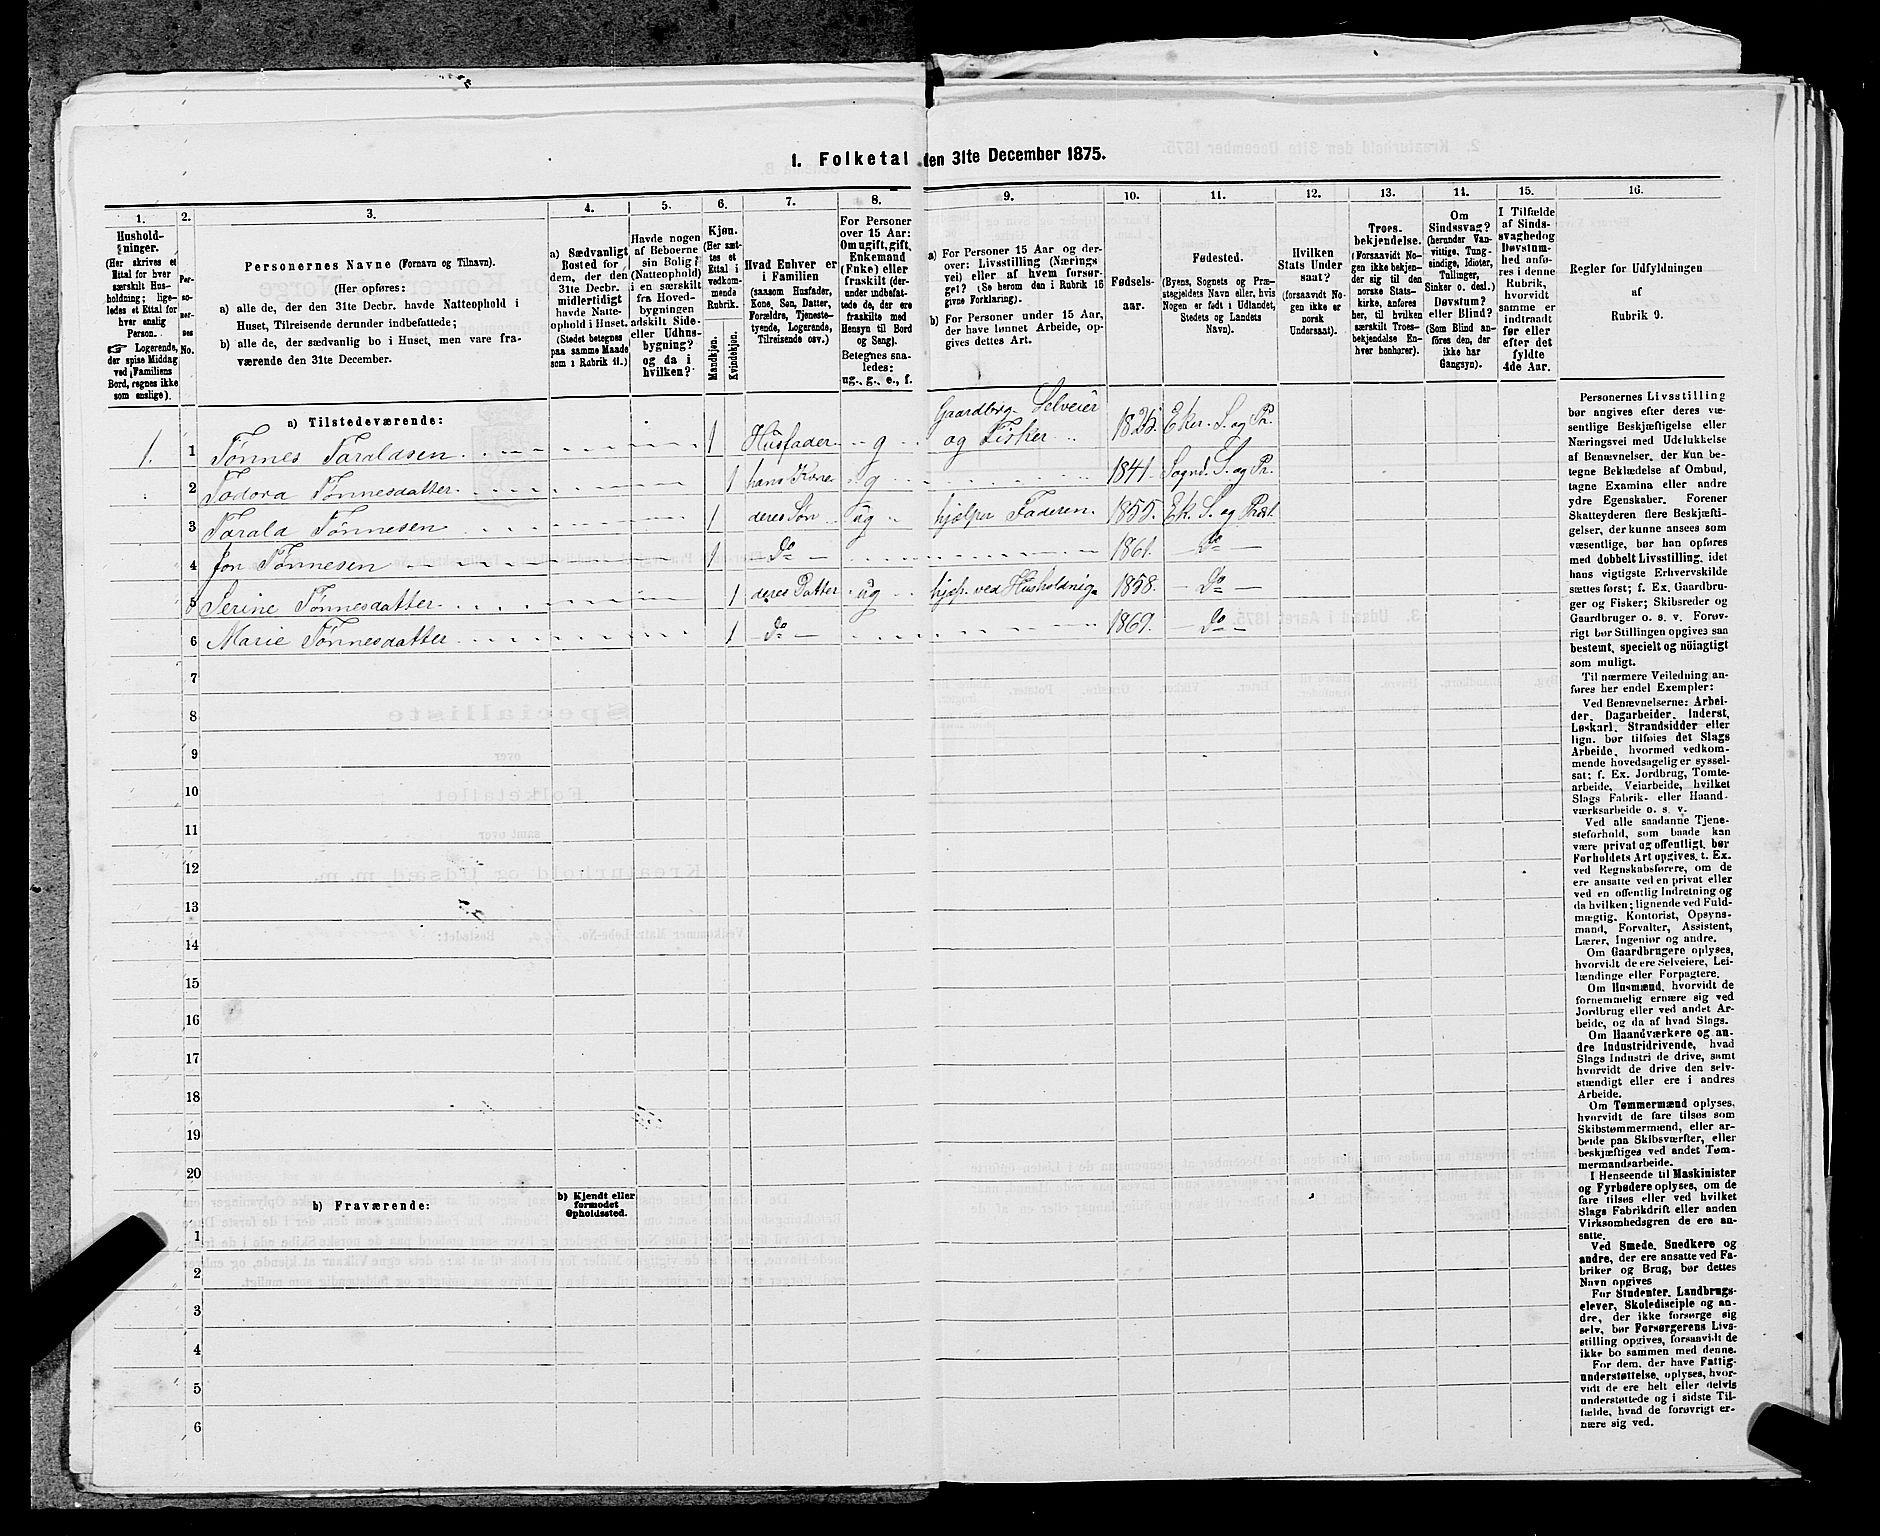 1. Folketal den 31te December 1875.
1.
2.
3.
4.
5.
6.
7.
8.
9.
10.
11.
12.
13.
14.
15.
16.
Hushold-
ninger.
(Her skrives et
Ettal for hver
særskilt Hus-
holdning; lige-
ledes et Ettal for
hver enslig
Person.
☞ Logerende,
der spise Middag
ved Familiens
Bord, regnes ikke
som enslige).
Per-
so-
ner-
nes
No.
Personernes Navne (Fornavn og Tilnavn).
(Her opføres:
a) alle de, der den 31te Decbr. havde Natteophold i
Huset, Tilreisende derunder indbefattede;
b) alle de, der sædvanlig bo i Huset, men vare fra-
værende den 31te December.
a) Sædvanligt
Bosted for
dem, der den
31te Decbr.
midlertidigt
havde Natte-
ophold i Huset.
(Stedet betegnes
paa samme Maade
som i Rubrik 11.)
Havde nogen
af Beboerne
sin Bolig
(Natteophold)
i en særskilt
fra Hoved-
bygningen
adskilt Side-
eller Udhus-
bygning?
og da i
hvilken?
Kjøn.
(Her sæt-
tes et
Ettal i
vedkom-
mende
Rubrik.
Mandkjøn.
Kvindekjøn.
Hvad Enhver er
i Familien
(saasom Husfader,
Kone, Søn, Datter,
Forældre, Tjeneste-
tyende, Logerende,
Tilreisende osv.)
For Personer
over 15 Aar:
Om ugift, gift,
Enkemand
(Enke) eller
fraskilt (der-
under indbefat-
tede de, der ere
fraskilte med
Hensyn til Bord
og Seng).
Betegnes saa-
ledes:
ug., g., e., f.
a) For Personer 15 Aar og der-
over: Livsstilling (Nærings
vei) eller af hvem forsør-
get? (Se herom den i Rubrik 16
givne Forklaring).
b) For Personer under 15 Aar,
der have lønnet Arbeide, op-
gives dettes Art.
Fødsels-
aar.
Fødested.
(Byens, Sognets og Præ-
stegjeldets Navn eller, hvis
Nogen er født i Udlandet,
Stedets og Landets
Navn).
Hvilken
Stats Under
saat?
(forsaavidt No-
gen ikke er
norsk
Undersaat).
Troes-
bekjendelse.
(Forsaavidt No-
gen ikke bekjen-
der sig til den
norske Stats-
kirke, anføres
her, til hvilken
særskilt Troes-
bekjendelse En-
hver henhører).
Om
Sindssvag?
(herunder Van-
vittige, Tung-
sindige, Idioter,
Tullinger,
Sinker o. desl.)
Døvstum?
eller Blind?
(Som Blind an-
føres den, der
ikke har
Gangsyn).
I Tilfælde
af Sinds-
svaghed og
Døvstum-
hed anfø-
res i denne
Rubrik,
hvorvidt
samme er
indtraadt
før eller
efter det
fyldte
4de Aar.
Regler for Udfyldningen
af
Rubrik 9.
a) Tilstedeværende:
1. 1 Tønnes Taraldsen 1 Husfader g Gaardbrg. Selveier og Fisker 1825. Eker. S. og Pr.
2 Todora Tønnesdatter 1 hans Kone g 1841. Sognd. S. og Pr.
3 Tarald Tønnesen 1 deres Søn ug hjelper Faderen. 1855. Ek. S. og Præst.
4 Jon Tønnesen 1 — Do — 1861. — Do —
5 Serine Tønnesdatter 1 deres Datter ug hjelp. ved Husholdnig 1858. — Do —
6 Marie Tønnesdatter 1 — Do — 1869. — Do —
7
8
9
10
11
12
13
14
15
16
17
18
19
20
b) Fraværende:
b) Kjendt eller
formodet
Opholdssted.
1
2
3
4
5
6
Personernes Livsstilling
bør angives efter deres væ-
sentlige Beskjæftigelse eller
Næringsvei med Udelukkelse
af Benævnelser, der kun be-
tegne Beklædelse af Ombud,
tagne Examina eller andre
ydre Egenskaber. Forener
Skatteyderen flere Beskjæfti-
gelser, der kunne ansees som
væsentlige, bør han opføres
med dobbelt Livsstilling, idet
hans vigtigste Erhvervskilde
sættes først; f. Ex. Gaardbru-
ger og Fisker; Skibsreder og
Gaardbruger o. s. v. Forøv-
rigt bør Stillingen opgives saa
bestemt, specielt og nöiagtigt
som muligt.
Til nærmere Veiledning an-
føres her endel Exempler:
Ved Benævnelserne: Arbei-
der, Dagarbeider, Inderst,
Løskarl, Strandsidder eller
lign. bør tilføies det Slags
Arbeide, hvormed vedkom-
mende hovedsagelig er syssel-
sat; f. Ex. Jordbrug, Tomte-
arbeide, Veiarbeide, hvilket
Slags Fabrik- eller Haand-
værksarbeide o. s. v.
Ved alle saadanne Tjene-
steforhold, som baade kan
være privat og offentligt, bør
Forholdets Art opgives, t. Ex.
ved Regnskabsførere, om de
ere ansatte ved en privat eller
ved en offentlig Indretning og
da hvilken; lignende ved Fuld-
mægtig, Kontorist, Opsyns-
mand, Forvalter, Assistent,
Lærer, Ingeniør og andre.
Om Gaardbrugere oplyses,
hvorvidt de ere Selveiere, Lei-
lændinge eller Forpagtere.
Om Husmænd, hvorvidt de
fornemmelig ernære sig ved
Jordbrug eller ved andet Ar-
beide, og da af hvad Slags.
Om Haandværkere og an-
dre Industridrivende, hvad
Slags Industri de drive, samt
hvorvidt de drive den selv-
stændigt eller ere i andres
Arbeide.
Om Tømmermænd oplyses,
hvorvidt de fare tilsøs som
Skibstømmermænd, eller ar-
beide paa Skibsværfter, eller
beskjæftiges ved andet Tøm-
mermandsarbeide.
I Henseende til Maskinister
og Fyrbødere oplyses, om de
fare tilsøs eller ved hvilket
Slags Fabrikdrift eller anden
Virksomhedsgren de ere an-
satte.
Ved Smede, Snedkere og
andre, der ere ansatte ved Fa-
briker og Brug, bør dettes
Navn opgives
For Studenter, Landbrugs-
elever, Skoledisciple og an-
dre, der ikke forsørge sig
selv, bør Forsørgerens Livs-
stilling opgives, forsaavidt de
ikke bo sammen med denne.
For dem, der have Fattig-
understøttelse, oplyses, hvor-
vidt de ere helt eller delvis
understøttede og i sidste Til-
fælde, hvad de forøvrigt er-
nære sig ved.